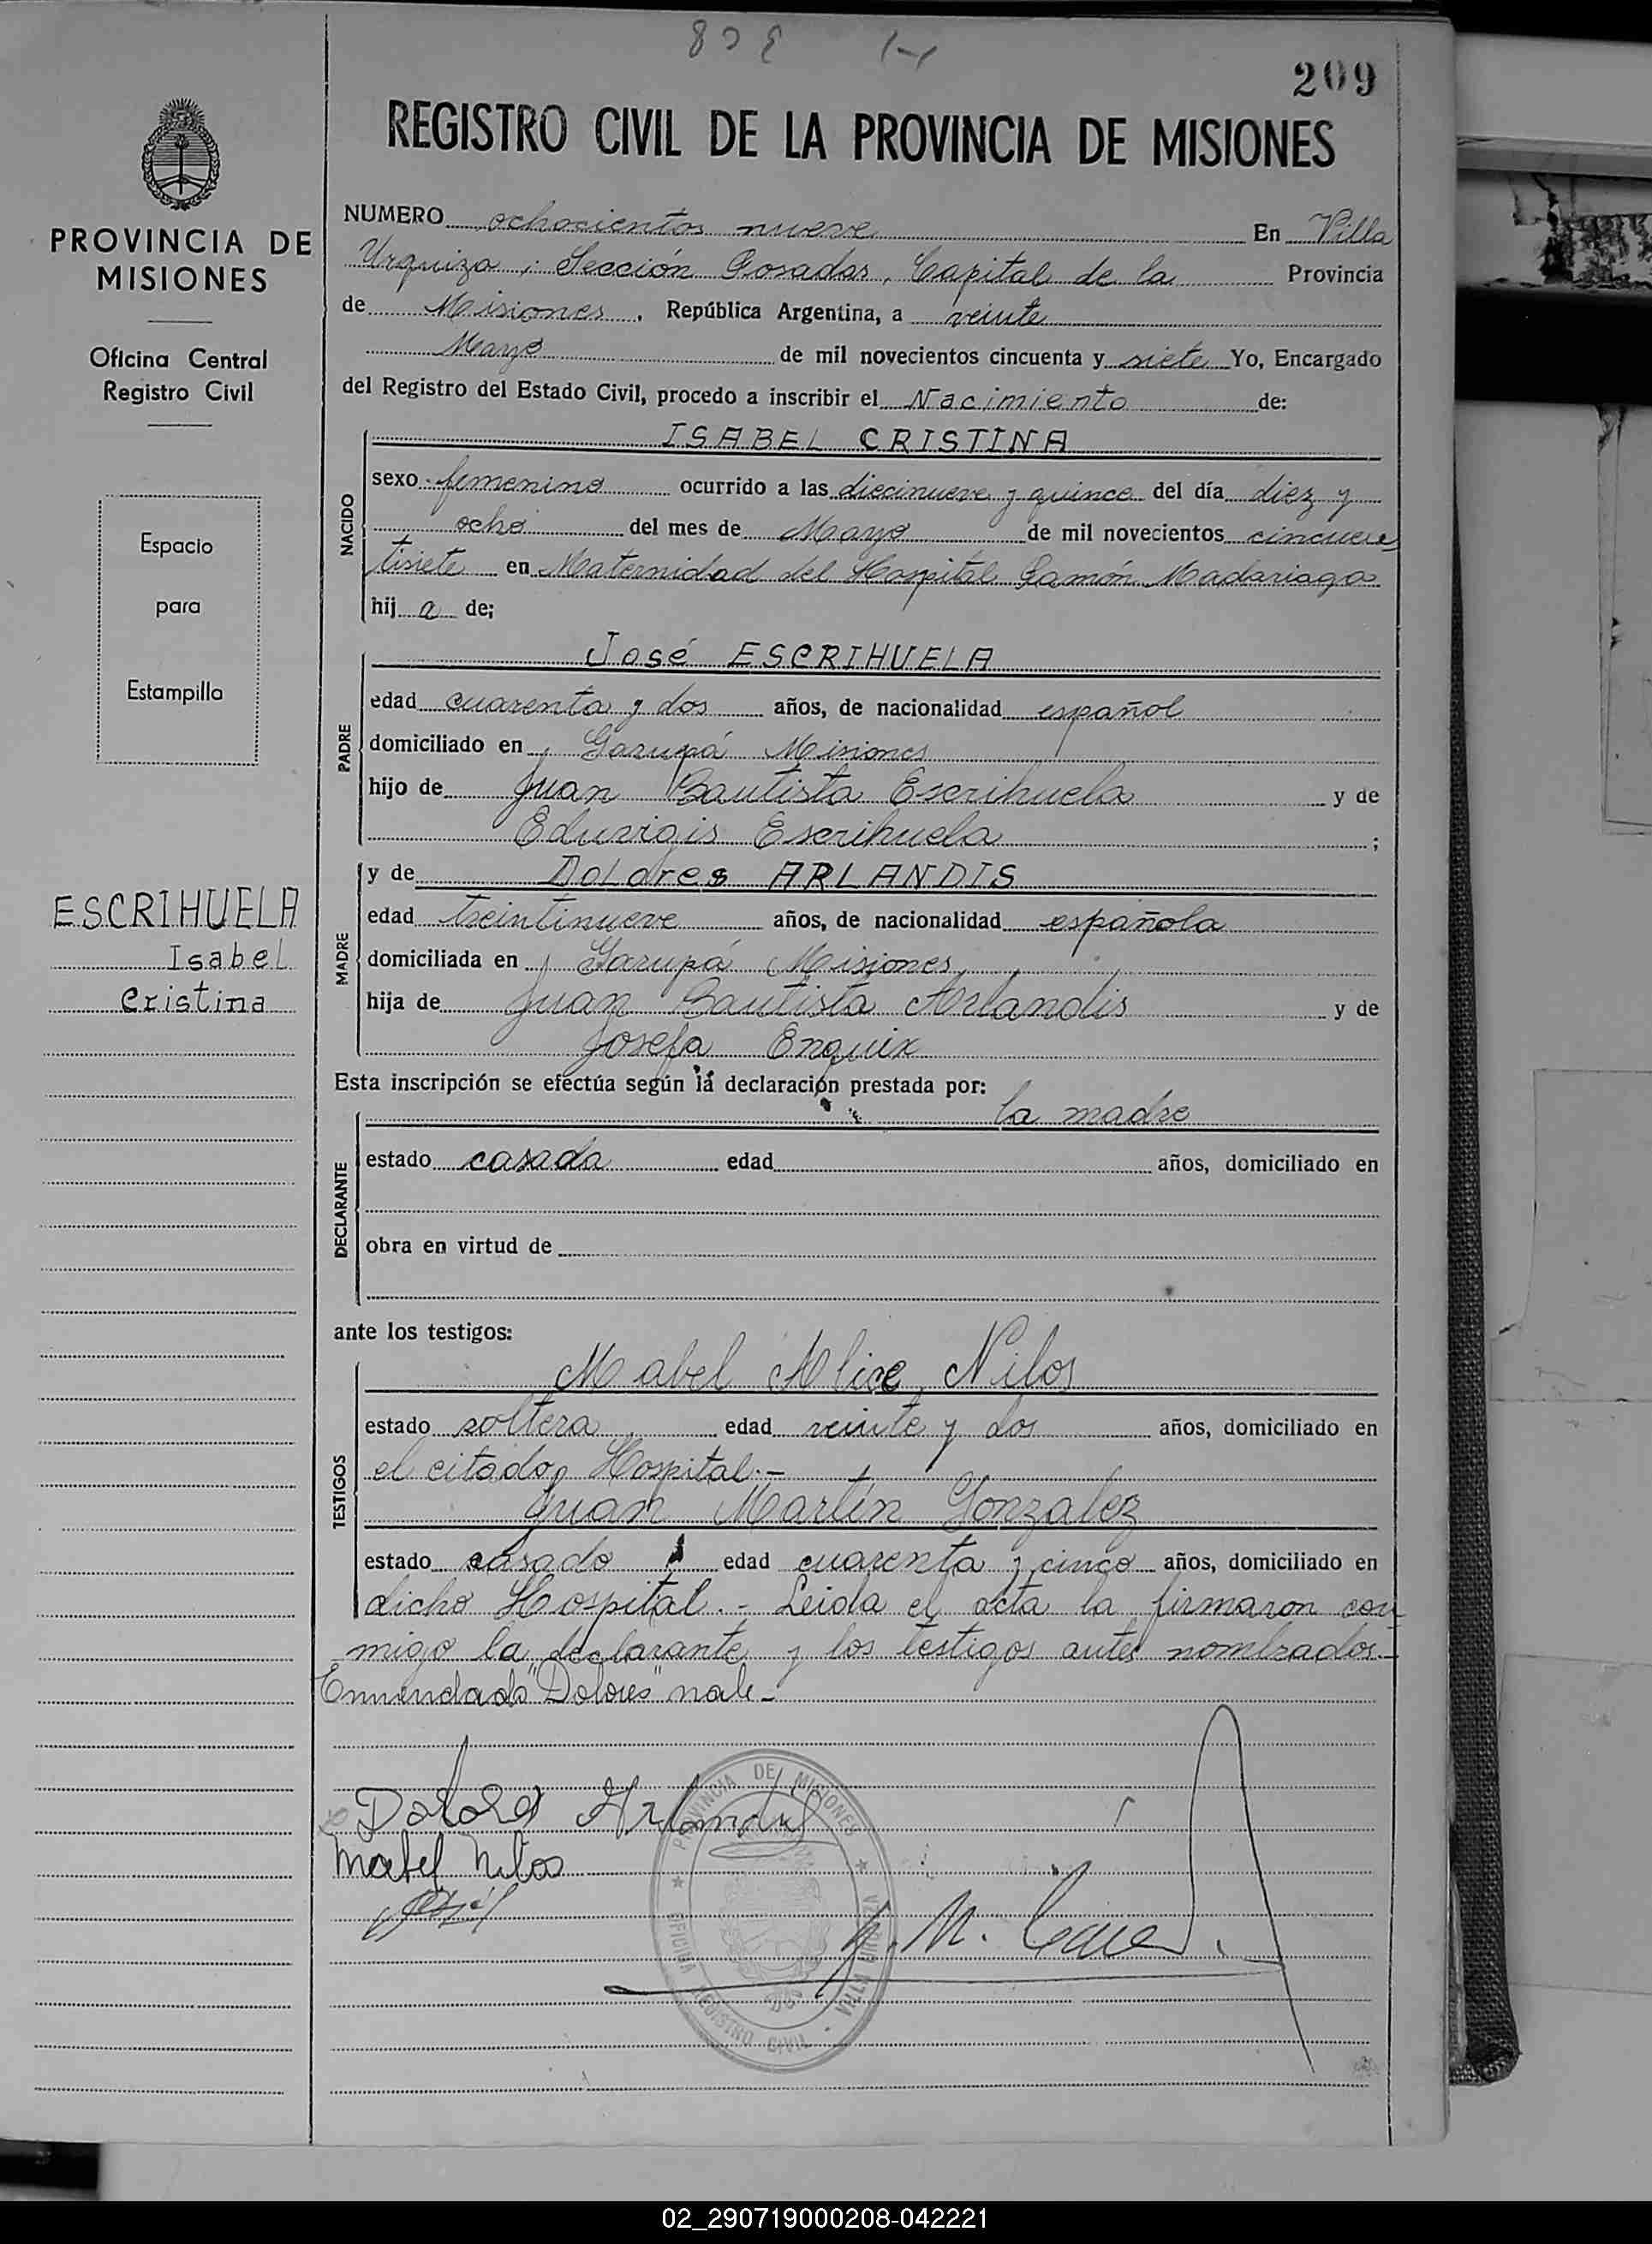 209
REGISTRO CIVIL DE LA PROVINCIA DE MISIONES
PROVINCIA DE
MISIONES
Oficina Central
Registro Civil
Espacio
para
Estampilla
ESCRIHUELA
Isabel
Cristina
NUMERO ochocientos nueve En Villa
Urquiza, Sección Posadas, Capital de la Provincia
de Misiones, República Argentina, a veinte
Mayo de mil novecientos cincuenta y siete Yo, Encargado
del Registro del Estado Civil, procedo a inscribir el Nacimiento de:
NACIDO
ISABEL CRISTINA
sexo femenino ocurrido a las diecinueve y quince del día diez y
ocho del mes de Mayo de mil novecientos cincuen
tisiete en Maternidad del Hospital Ramón Madariaga
hij a de;
PADRE
José ESCRIHUELA
edad cuarenta y dos años, de nacionalidad español
domiciliado en Garupá Misiones
hijo de Juan Bautista Escrihuela y de
Eduvigis Escrihuela ;
MADRE
y de Dolores ARLANDIS
edad treintinueve años, de nacionalidad española
domiciliada en Garupá Misiones
hija de Juan Bautista Arlandis y de
Josefa Enguix
Esta inscripción se efectúa según la declaración prestada por:
DECLARANTE
la madre
estado casada edad años, domiciliado en
obra en virtud de
ante los testigos:
TESTIGOS
Mabel Alice Nilos
estado soltera edad veinte y dos años, domiciliado en
el citado Hospital.-
Juan Martín Gonzalez
estado casado edad cuarenta y cinco años, domiciliado en
dicho Hospital.- Leida el acta la firmaron con
migo la declarante y los testigos antes nombrados.-
Enmendado "Dolores" vale-
Dolores Arlandis
Mabel Nilos
PROVINCIA DE MISIONES
OFICINA REGISTRO CIVIL - VILLA URQUIZA
02_290719000208-042221